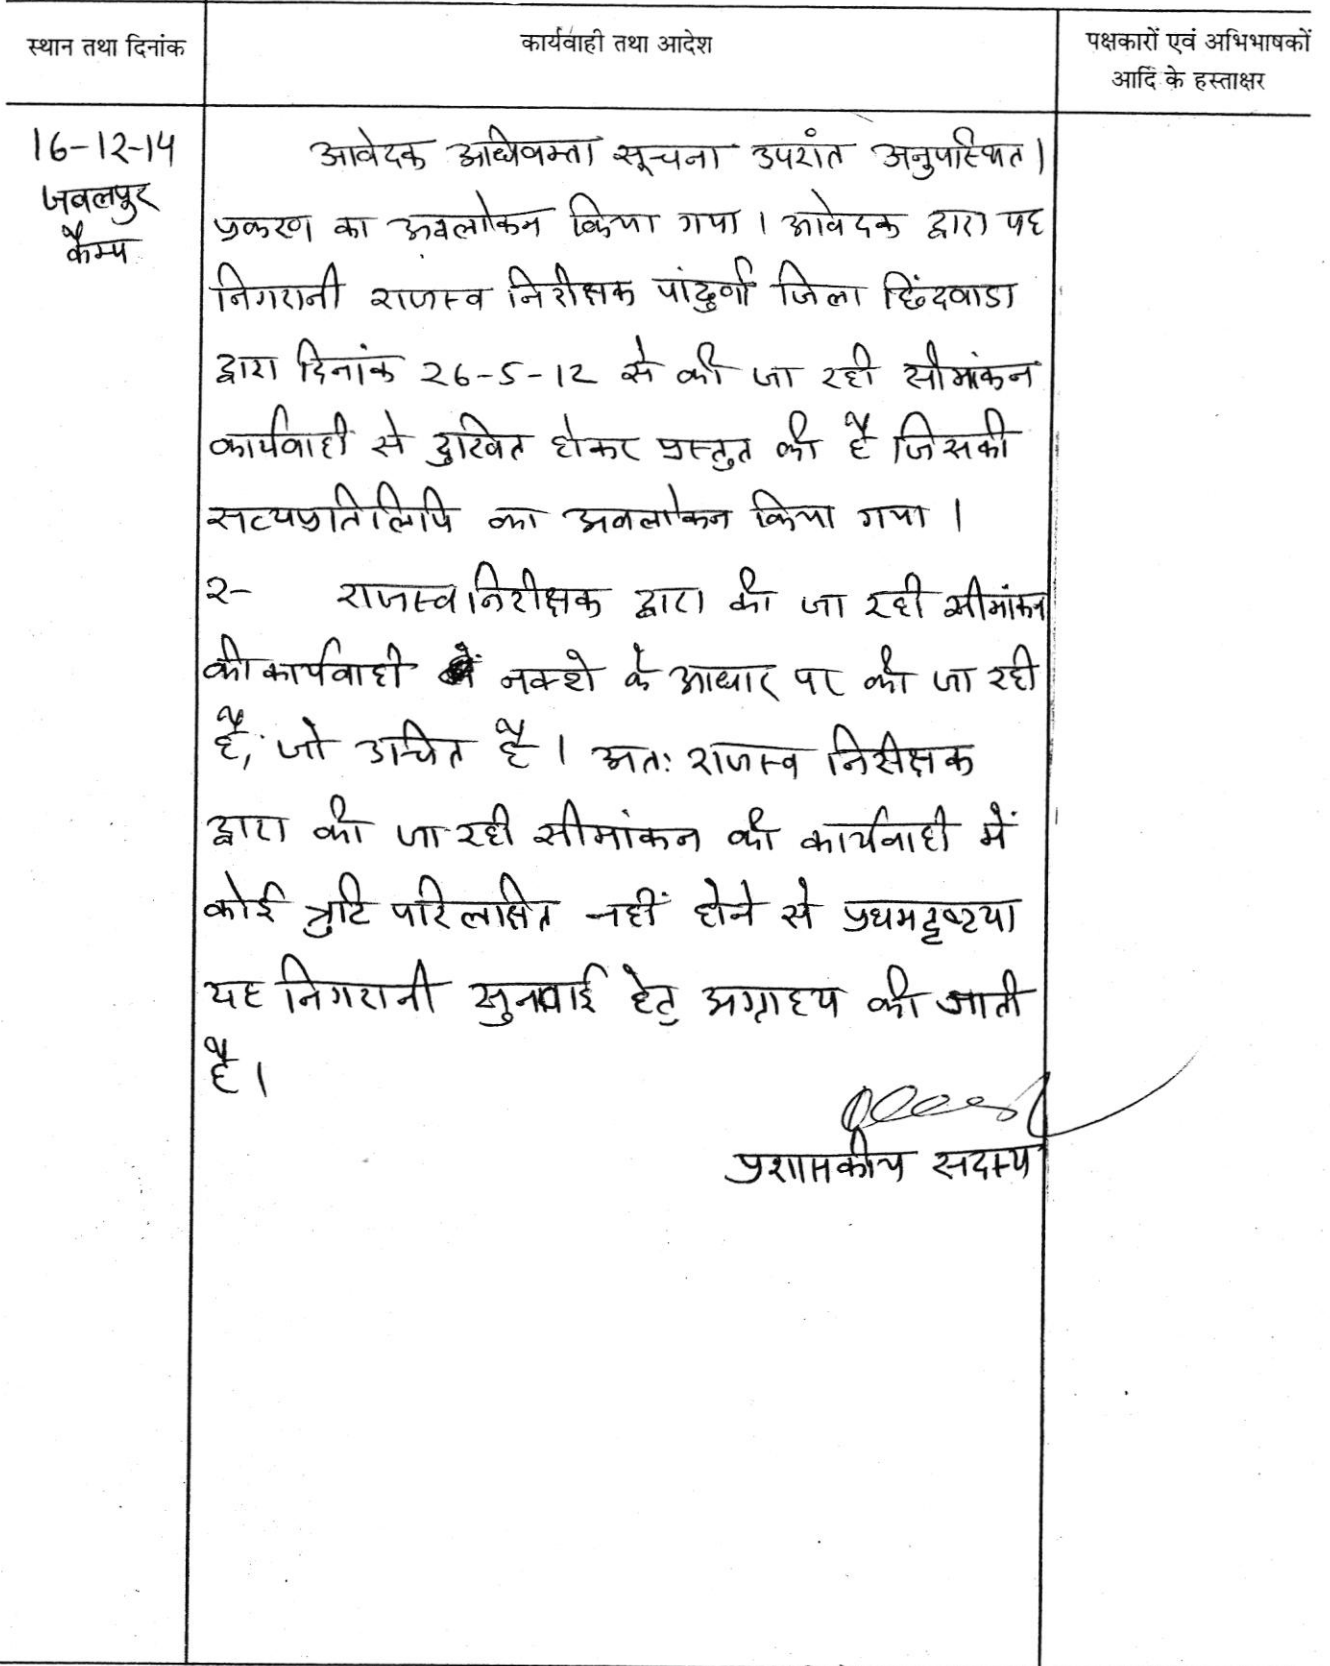 स्थान तथा दिनांक
कार्यवाही तथा आदेश
पक्षकारों एवं अभिभाषकों
आदि के हस्ताक्षर
16-12-14
जबलपुर
कैम्प
आवेदक अधिवक्ता सूचना उपरांत अनुपस्थित।
प्रकरण का अवलोकन किया गया। आवेदक द्वारा यह
निगरानी राजस्व निरीक्षक पांढुर्णा जिला छिंदवाडा
द्वारा दिनांक 26-5-12 से की जा रही सीमांकन
कार्यवाही से दुखित होकर प्रस्तुत की है जिसकी
सत्यप्रतिलिपि का अवलोकन किया गया।
2- राजस्व निरीक्षक द्वारा की जा रही सीमांकन
की कार्यवाही नक्शे के आधार पर की जा रही
है, जो उचित है। अतः राजस्व निरीक्षक
द्वारा की जा रही सीमांकन की कार्यवाही में
कोई त्रुटि परिलक्षित नहीं होने से प्रथमदृष्टया
यह निगरानी सुनवाई हेतु अग्राहय की जाती
है।
प्रशासकीय सदस्य